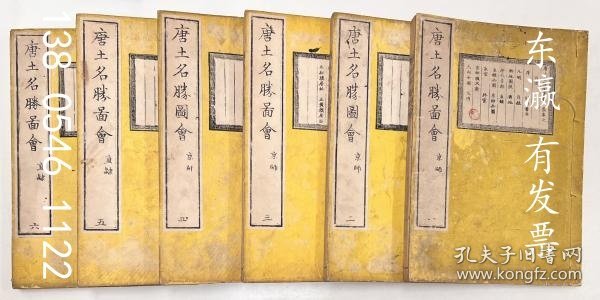 唐土名勝圖會 直隸 六
唐土名勝圖會 直隸 五
唐土名勝圖會 京師 四
唐土名勝圖會 京師 三
唐土名勝圖會 京師 二
唐土名勝圖會 京師 一
138 0546 1122
东瀛 有发票
孔夫子旧书网
www.kongfz.com